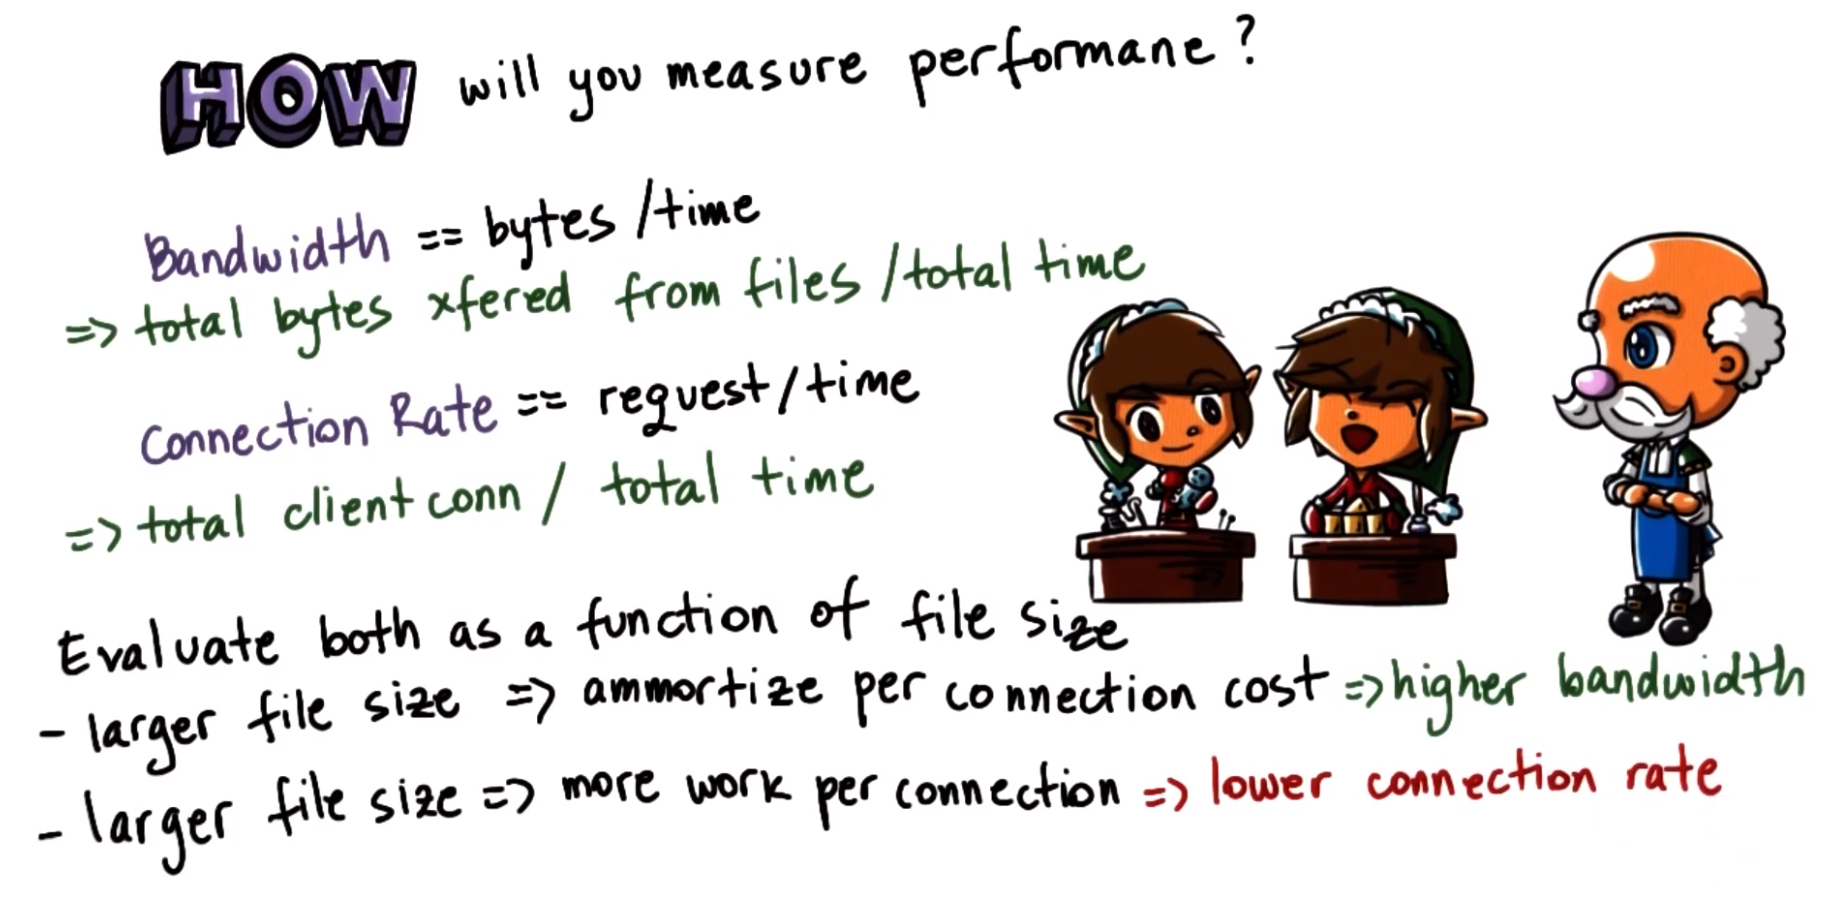 HOW will you measure performane?
Bandwidth == bytes/time
=> total bytes xfered from files/total time
Connection Rate == request/time
=> total client conn / total time
Evaluate both as a function of file size
- larger file size => ammortize per connection cost => higher bandwidth
- larger file size => more work per connection => lower connection rate